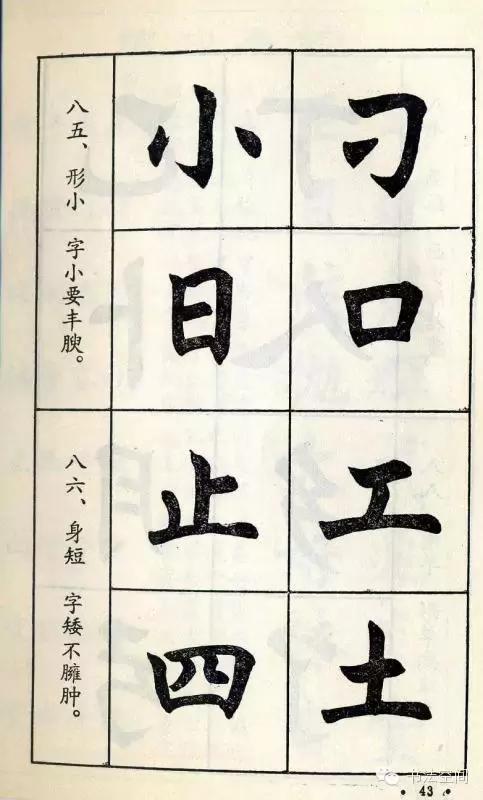 刁口
小日
八五、形小 字小要丰腴。
工土
止四
八六、身短 字矮不臃肿。
书法空间
· 43 ·